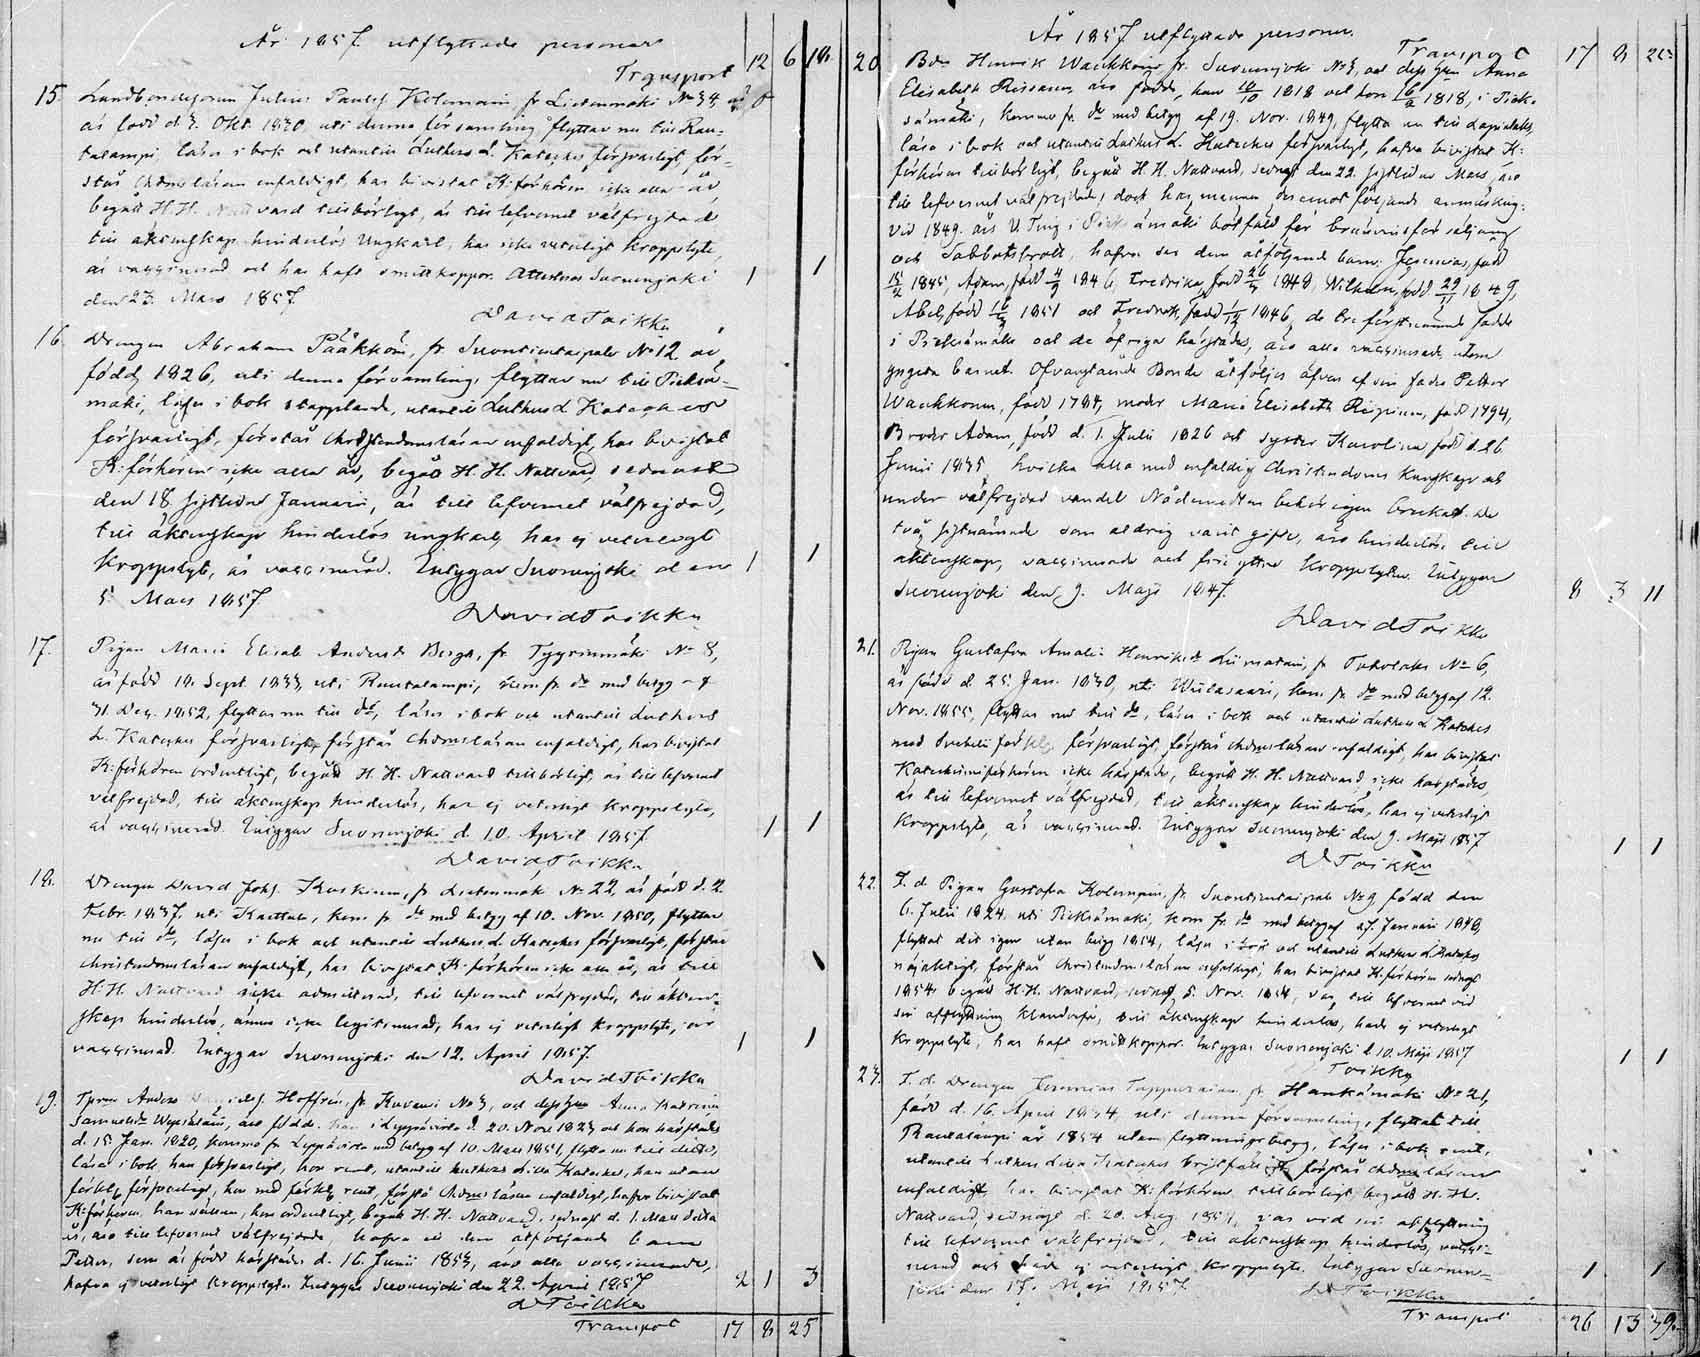 År 1857. utflyttade personer
Transport 12 6 18
15. Landbondesonen Julius Paulsf Kolemain, fr Lietenmäki No 34,
är född d. 3. Okt. 1830, uti denna församling flyttar nu till Rau-
talampi, läser i bok och utantill Luthers L. Kateches försvarligt, för-
står Chrdmsläran enfaldigt, har bivistat K:förhören icke alla år
begått H. H. Nattvard tillbörligt, är till lefvernet välfrejdad
till äktenskap hinderlös Ungkarl, har icke veterligt kroppslyte,
är vaccinerad och har haft smittkoppor. Attesteras Suonenjoki 1 1
den 23. Mars 1857
David Toikka
16. Drengen Abraham Pääkkön, fr. Suontientaipale No 12 är
född 1826, uti denna församling, flyttar nu till Pieksä-
mäki, läser i bok stapplande, utantill Luthers L Kateches
försvarligt, förstår Christendomsläran enfaldigt, har bivistat
K:förhören icke alla år, begått H. H. Nattvard, sednast
den 18 sistlidne Januarii, är till lefvernet välfrejdad,
till äktenskap hinderlös ungkarl, har ej veterligt
kroppslyte, är vaccinerad. Intygar Suonenjoki den 1 1
5. Mars 1857.
David Toikka
17. Pigan Maria Elisab. Andersd. Bergh, fr Tyyrinmäki No 8,
är född 19. Sept. 1833, uti Rautalampi, kom fr. do med betyg af
31. Dec. 1852, flyttar nu till do, läser i bok och utantill Luthers
L. Kateches försvarligt, förstår Chrdmsläran enfaldigt, har bivistat
K:förhören ordentligt, begått H. H. Nattvard tillbörligt, är till lefvernet
välfrejdad, till äktenskap hinderlös, har ej veterligt kroppslyte,
är vaccinerad. Intygar Suonenjoki d. 10. April 1857. 1 1
David Toikka
18. Drengen David Johs. Koskinen, fr Lietenmäk No 22, är född d. 2.
Febr. 1837, uti Karttula, kom fr do med betyg af 10. Nov. 1850, flyttar
nu till do, läser i bok och utantill Luthers L. Kateches försvarligt, förstår
christendomsläran enfaldigt, har bivistat K:förhören icke alla år, är till
H. H. Nattvard icke admitterad, till lefvernet välfrejdad, till äkten-
skap hinderlös, ännu icke legitimerad, har ej veterligt kroppslyte, är
vaccinerad. Intygar Suonenjoki den 12. April 1857. 1 1
David Toikka
19. Anders Hoffrén, fr Kuvansi No 3, och dess hu Anna Katrina
Samuelsdr äro födde han i Leppävirta d. 20. Nov. 1823 och hon härstädes
d. 15. Jan. 1820, komma fr Leppävirta med betyg af 10. Mars 1851, flytta nu till ditto,
läsa i bok, han försvarligt, hon rent, utantill Luthers Lilla Kateches, han utan
förkl. försvarligt, hon med förkl. rent, förstå Chdmsläran enfaldigt, hafva bivistat
K:förhören han sällan, hon ordentligt, begått H. H. Nattvard, sednast d. 1. Mars detta
år, äro till lefvernet välfrejdade, hafva ett dem åtföljande barn
Petter, som är född härstädes d. 16. Junii 1853, äro alla vaccinerade,
hafva ej veterligt kroppslyte. Intygar Suonenjoki den 22. April 1857 2 1 3
D Toikka
Transport 17 8 25
År 1857 utflyttade personer.
Transport 17 8 25
20. Bdn Henrik Waukkoin fr. Suonenjoki No 3, och dess hu Anna
Elisabeth Rissanen, äro födde, han 18/10 1818 och hon 16/2 1818, i Piek-
sämäki, komma fr. do med betyg af 19. Nov. 1849, flytta nu till
läsa i bok och utantill Luthers L. Kateches försvarligt, hafva bivistat K:
förhören tillbörligt, begått H. H. Nattvard, sednast den 22. sistlidne Mars, äro
till lefvernet välfrejdade, dock har mannen deremot följande anmärkning:
vid 1849. års V. Ting i Pieksämäki bötfälld för bränvinsförsäljning
och Sabbatsbrott, hafva sex dem åtföljande barn: Jeremias, född
15/2 1845, Adam, född 4/9 1846, Fredrika, född 26/3 1848, Wilhelm, född 29/11 1849,
Abel, född 16/3 1851 och Fredrik, född 1/12 1856, de tre förstnämnde födde
i Pieksämäki och de öfriga härstädes, äro alla vaccinerade, utom
yngsta barnet. Ofvanstående Bonde åtföljes äfven af sin fader Petter
Waukkonen, född 1784, moder Maria Elisabeth född 1794,
Broder Adam, född d. 1. Julii 1826 och syster Karolina född d. 26
Junii 1835, hvilka alla med enfaldig Christendoms kunskap och
under välfrejdad vandel Nådemedlen behörigen brukat. De
två sistnämnde som aldrig varit gifte, äro hinderlösa till
äktenskap, vaccinerade och fria yttre kroppslyten. Intygar
Suonenjoki den 9. Maji 1857. 8 3 11
David Toikka
21. Pigan Gustafva Amalia Henriksdr Liimatain, fr Toholaks No 6,
är född d. 25. Jan. 1830, uti Wiitasaari, kom fr do med betyg af 12.
Nov. 1855, flyttar nu till do, läser i bok och utantill Luthers L Kateches
med försvarligt, förstår chdmsläran enfaldigt, har bivistat
Katechismiförhören icke härstädes, begått H. H. Nattvard, icke härstädes,
är till lefvernet välfrejdad, till äktenskap hinderlös, har ej veterligt
kroppslyte, är vaccinerad. Intygar Suonenjoki den 9. Maji 1857 1 1
D Toikka
22. F. d. Pigan Gustafva Kolemain, fr. Suontientaipale No 9 född den
6. Julii 1824 uti Pieksämäki, kom fr. do med betyg af 7. Januari 1848,
flyttat dit igen utan betyg 1854, läser i bok och utantill Luthers L Kateches
nöjaktigt, förstår Christendomsläran enfaldigt, har bivistat K:förhören sednast
1854 begått H. H. Nattvard, sednast 5. Nov. 1854, var till lefvernet vid
sin afflyttning klanderfri, till äktenskap hinderlös, hade ej veterligt
kroppslyte, har haft smittkoppor. Intygar Suonenjoki d. 10. Maji 1857 1 1
Toikka
23. F. d. Drengen Jeremias Tappurainen, fr Hankamäki No 21,
född d. 16. April 1834 uti denna församling, flyttat till
Rautalampi år 1854 utan flyttningsbetyg, läser i bok rent,
utantill Luthers Lilla Kateches bristfälligt, förstår chdmsläran
enfaldigt, har bivistat K:förhören tillbörligt, begått H. H.
Nattvard, sednast d. 20. Aug. 1854, var vid sin afflyttning
till lefvernet välfrejdad, till äktenskap hinderlös, vacci-
nerad och hade ej veterligt kroppslyte. Intygar Suonen- 1 1
joki den 17. Maji 1857.
D Toikka
Transport 26 13 39